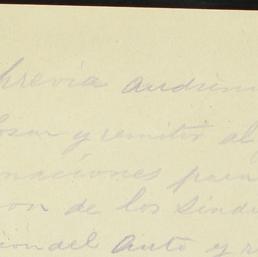 previa audien
y remitir al
naciones para
on de los Sindi
cion del Auto y r